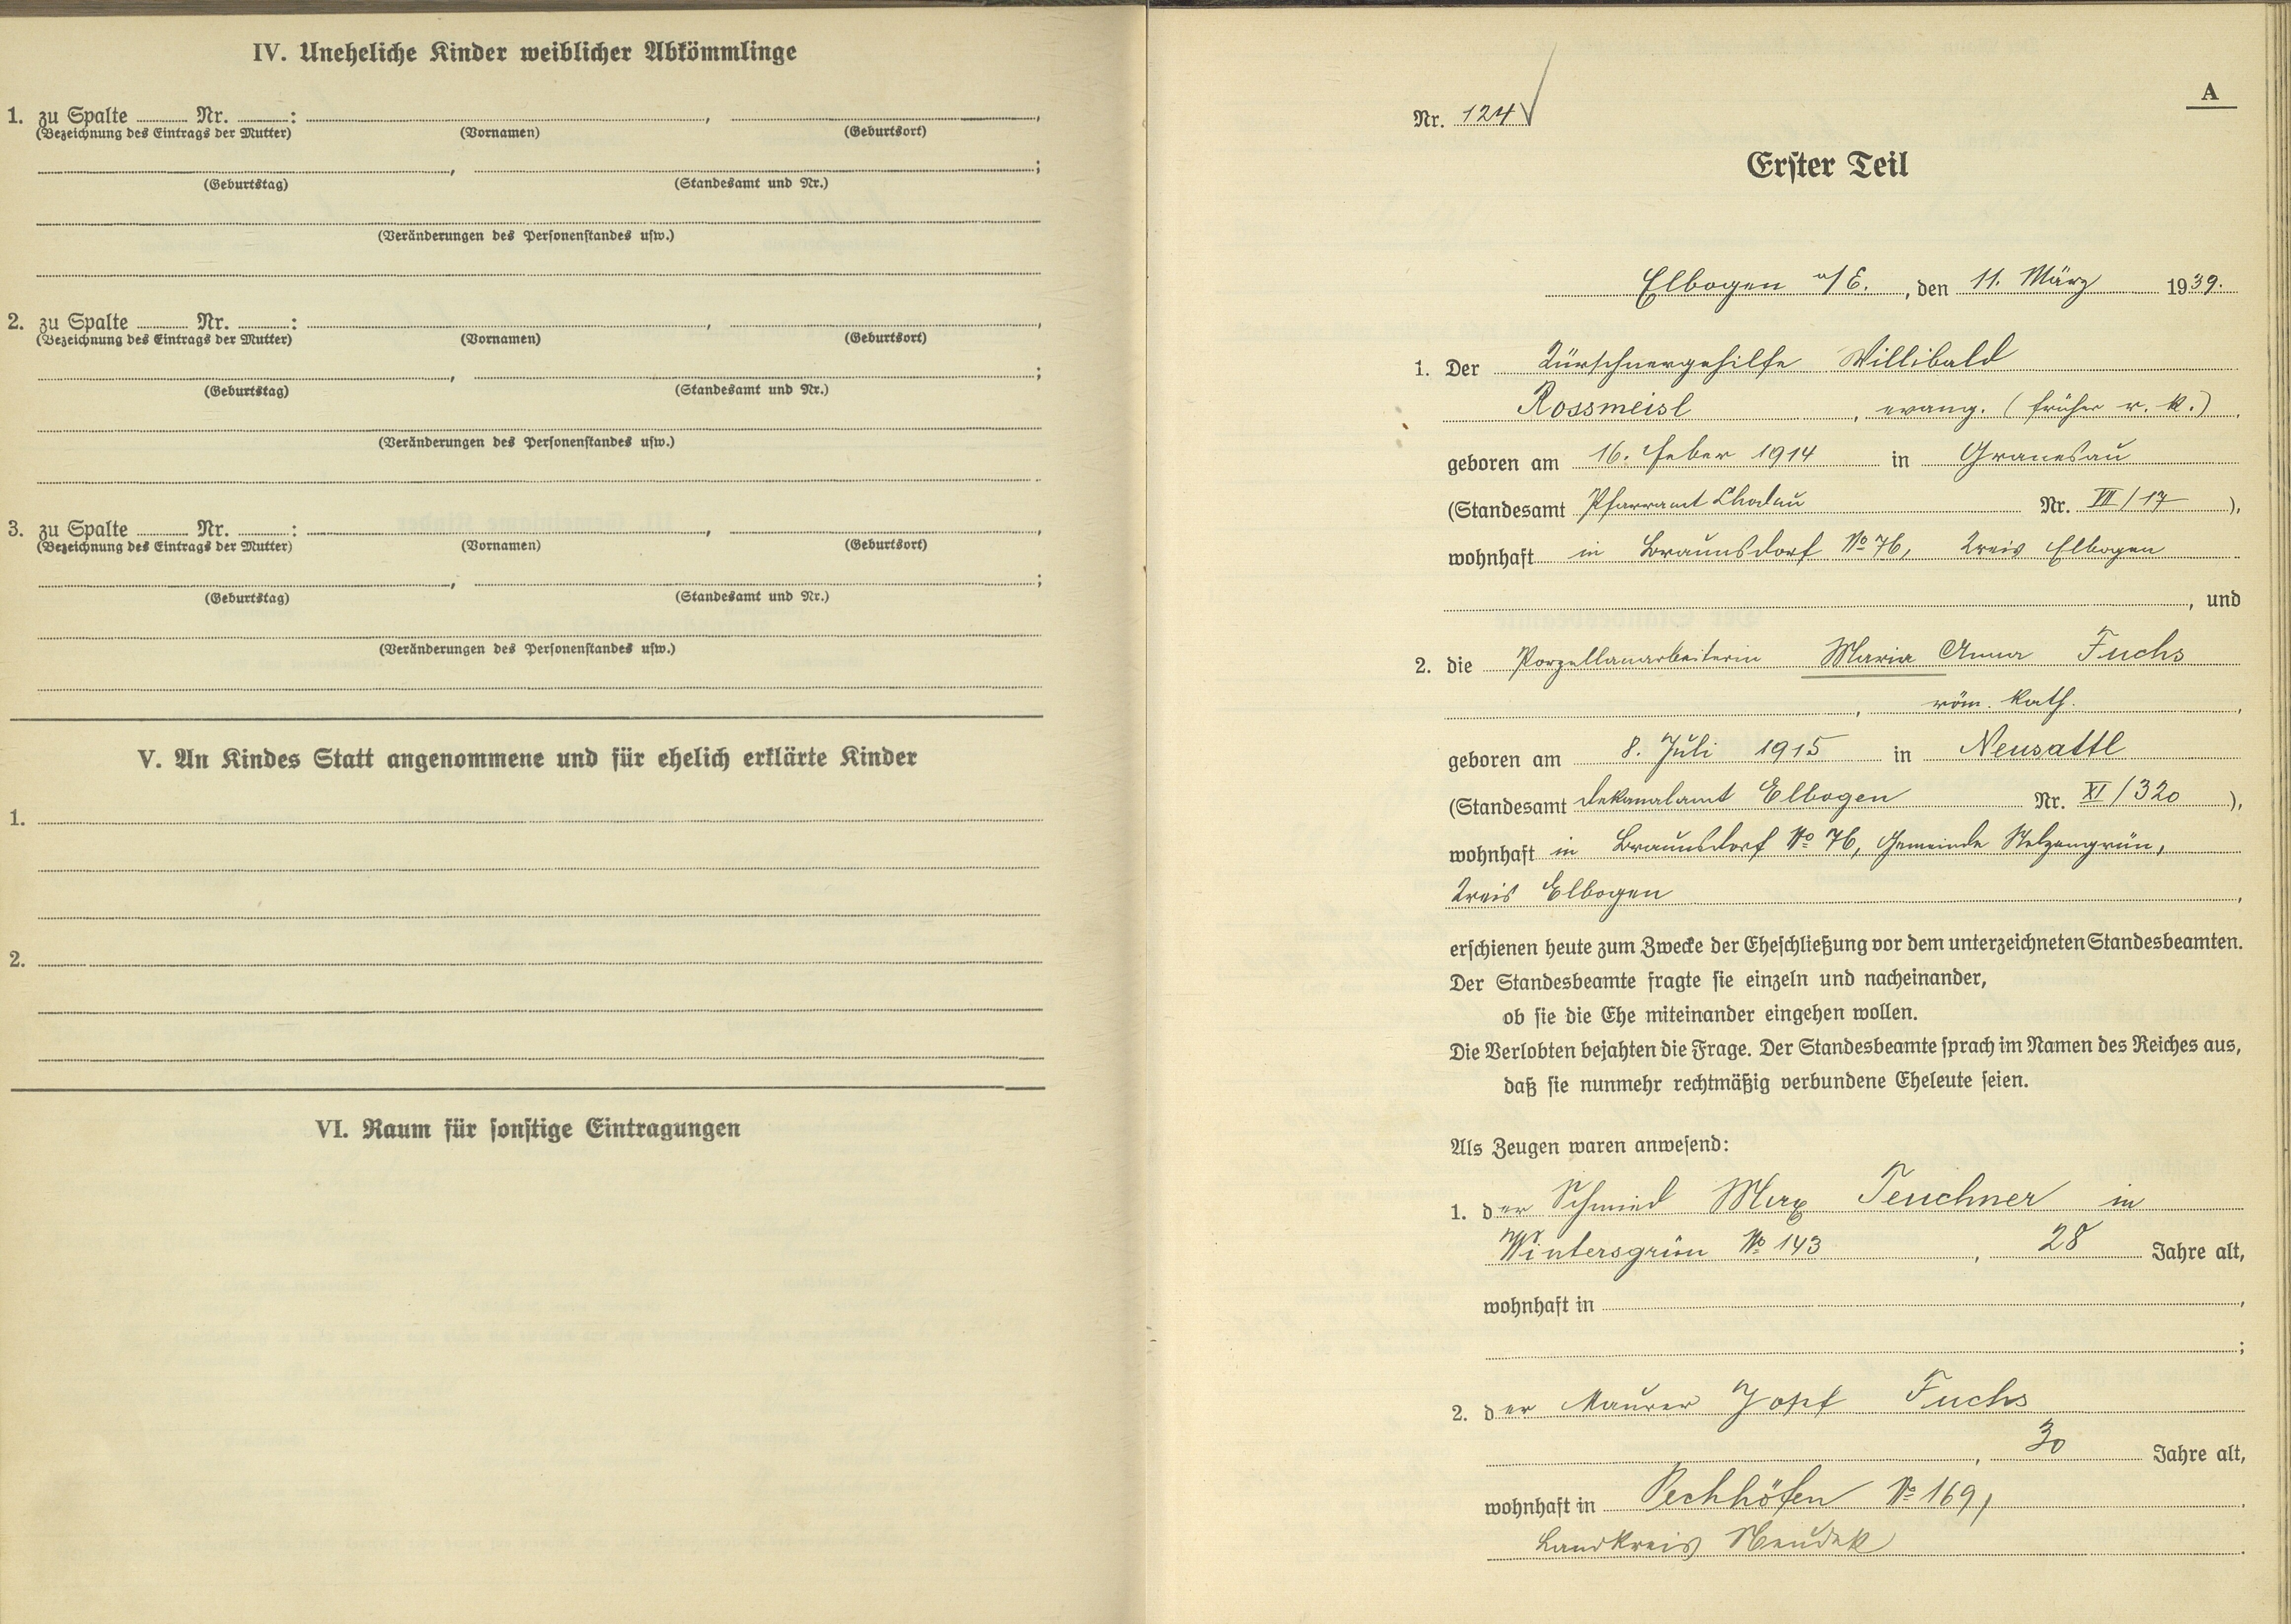 IV. Uneheliche Kinder weiblicher Abkömmlinge
1. zu Spalte ........ Nr. ........: ........, ........,
(Bezeichnung des Eintrags der Mutter) (Vornamen) (Geburtsort)
........, ........;
(Geburtstag) (Standesamt und Nr.)
(Veränderungen des Personenstandes usw.)
2. zu Spalte ........ Nr. ........: ........, ........,
(Bezeichnung des Eintrags der Mutter) (Vornamen) (Geburtsort)
........, ........;
(Geburtstag) (Standesamt und Nr.)
(Veränderungen des Personenstandes usw.)
3. zu Spalte ........ Nr. ........: ........, ........,
(Bezeichnung des Eintrags der Mutter) (Vornamen) (Geburtsort)
........, ........;
(Geburtstag) (Standesamt und Nr.)
(Veränderungen des Personenstandes usw.)
V. An Kindes Statt angenommene und für ehelich erklärte Kinder
1.
2.
VI. Raum für sonstige Eintragungen
A
Nr. 124
Erster Teil
Elbogen a/E., den 11. März 1939.
1. Der Kürschnergehilfe Willibald
Rossmeisl, evang. (früher r. k.),
geboren am 16. Feber 1914 in Granesau
(Standesamt Pfarramt Chodau Nr. VII/17),
wohnhaft in Braunsdorf No 76, Kreis Elbogen
, und
2. die Porzellanarbeiterin Maria Anna Fuchs
, röm. kath.,
geboren am 8. Juli 1915 in Neusattl
(Standesamt Dekanalamt Elbogen Nr. XI/320),
wohnhaft in Braunsdorf No 76, Gemeinde Stelzengrün,
Kreis Elbogen,
erschienen heute zum Zwecke der Eheschließung vor dem unterzeichneten Standesbeamten.
Der Standesbeamte fragte sie einzeln und nacheinander,
ob sie die Ehe miteinander eingehen wollen.
Die Verlobten bejahten die Frage. Der Standesbeamte sprach im Namen des Reiches aus,
daß sie nunmehr rechtmäßig verbundene Eheleute seien.
Als Zeugen waren anwesend:
1. der Schmied Max Teuchner in
Wintersgrün No 143, 28 Jahre alt,
wohnhaft in ,
;
2. der Maurer Josef Fuchs
, 30 Jahre alt,
wohnhaft in Pechhöfen No 169,
Landkreis Neudek.